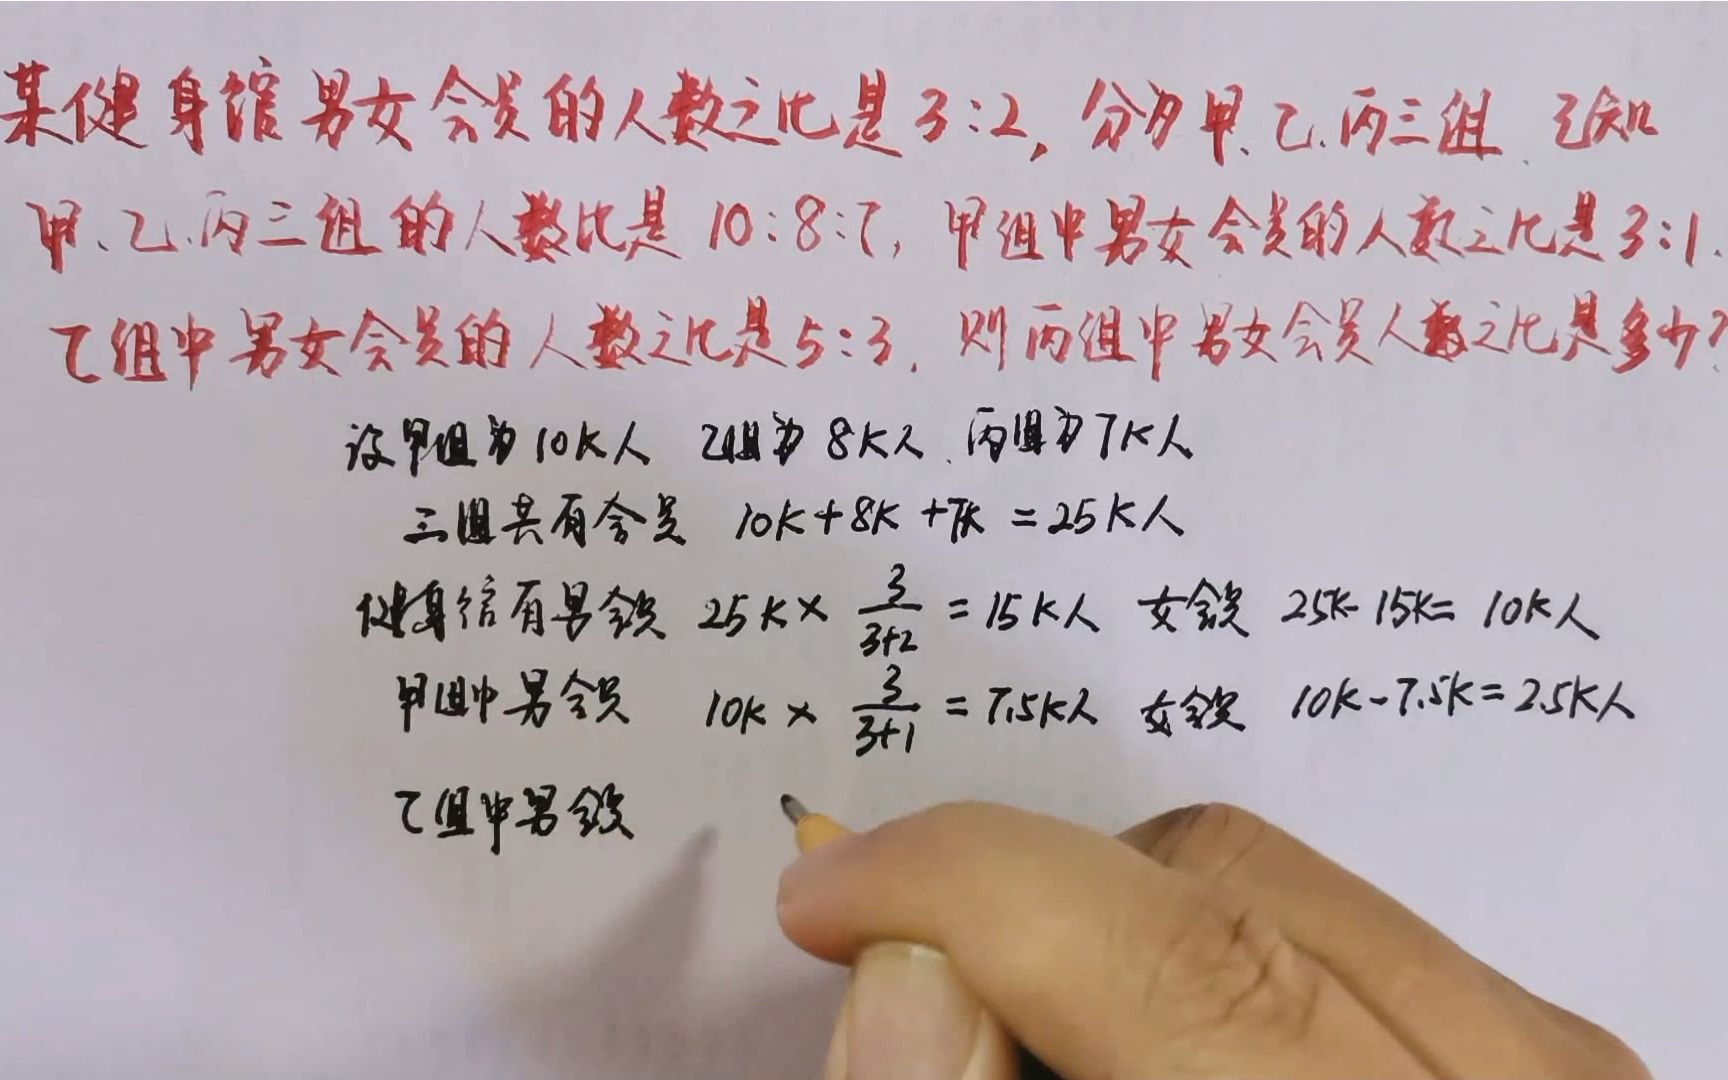 某健身馆男女会员的人数之比是3:2，分为甲、乙、丙三组、已知
甲、乙、丙三组的人数比是10:8:7，甲组中男女会员的人数之比是3:1.
乙组中男女会员的人数之比是5:3，则丙组中男女会员人数之比是多少?
设甲组为10K人 乙组为8K人、丙组为7K人
三组共有会员 10K+8K+7K=25K人
健身馆有男会员 25K×3/(3+2)=15K人 女会员 25K-15K=10K人
甲组中男会员 10K×3/(3+1)=7.5K人 女会员 10K-7.5K=2.5K人
乙组中男会员